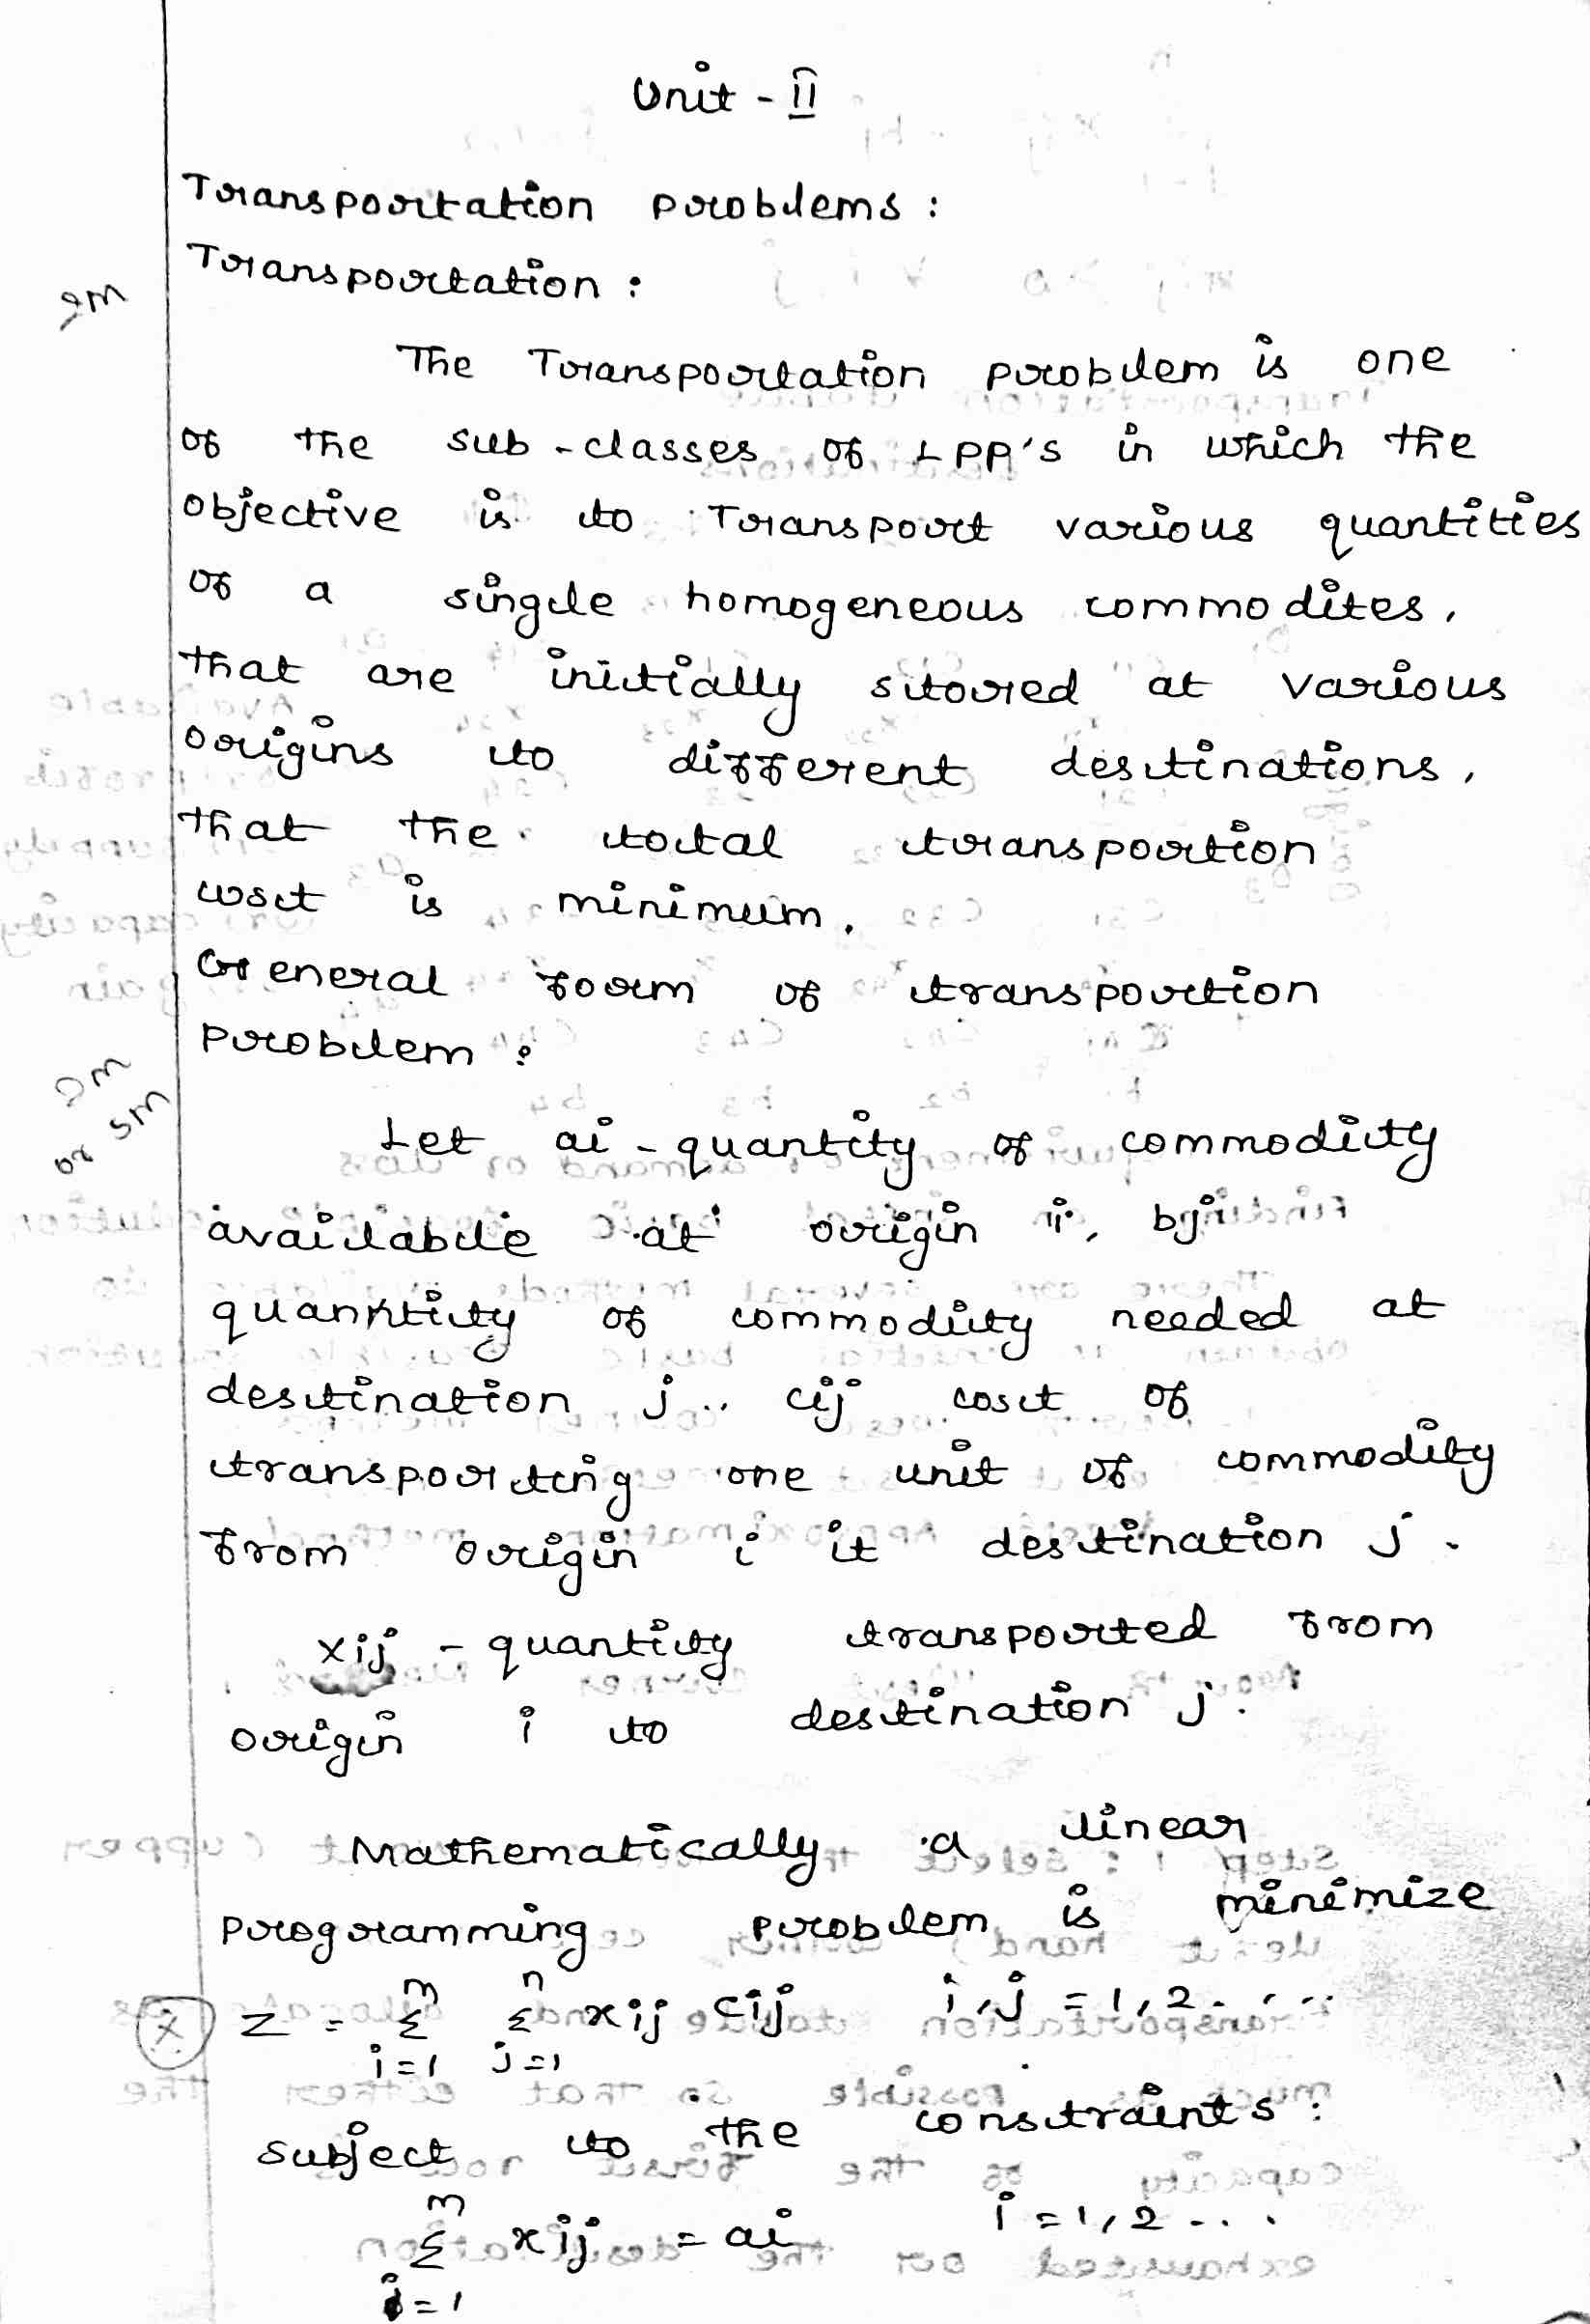 Unit - II
Transportation problems :
Transportation :
2M
The Transportation problem is one
of the sub-classes of LPP's in which the
objective is to Transport various quantities
of a single homogeneous commodites,
that are initially stored at various
origins to different destinations,
that the total transportion
cost is minimum.
General form of transportion
Problem :
2M
or 5M
Let ai - quantity of commodity
available at origin i, bj
quantity of commodity needed at
destination j.. cij cost of
transporting one unit of commodity
from origin i it destination j.
xij - quantity transported from
origin i to destination j.
Mathematically a linear
programming problem is minimize
Z = m Σ i=1 n Σ j=1 xij cij i,j = 1,2.....
subject to the constraints:
m Σ i=1 xij = ai i = 1,2....